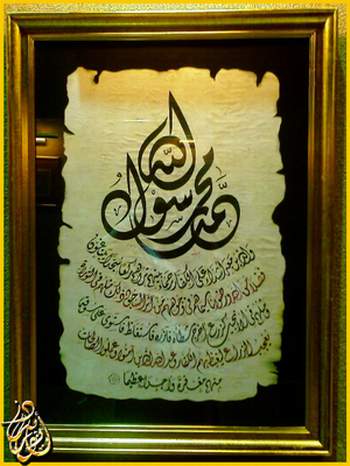 محمد رسول الله
والذين معه أشداء على الكفار رحماء بينهم تراهم ركعا سجدا يبتغون
فضلا من الله ورضوانا سيماهم في وجوههم من أثر السجود ذلك مثلهم في التوراة
ومثلهم في الإنجيل كزرع أخرج شطأه فآزره فاستغلظ فاستوى على سوقه
يعجب الزراع ليغيظ بهم الكفار وعد الله الذين آمنوا وعملوا الصالحات
منهم مغفرة وأجرا عظيما